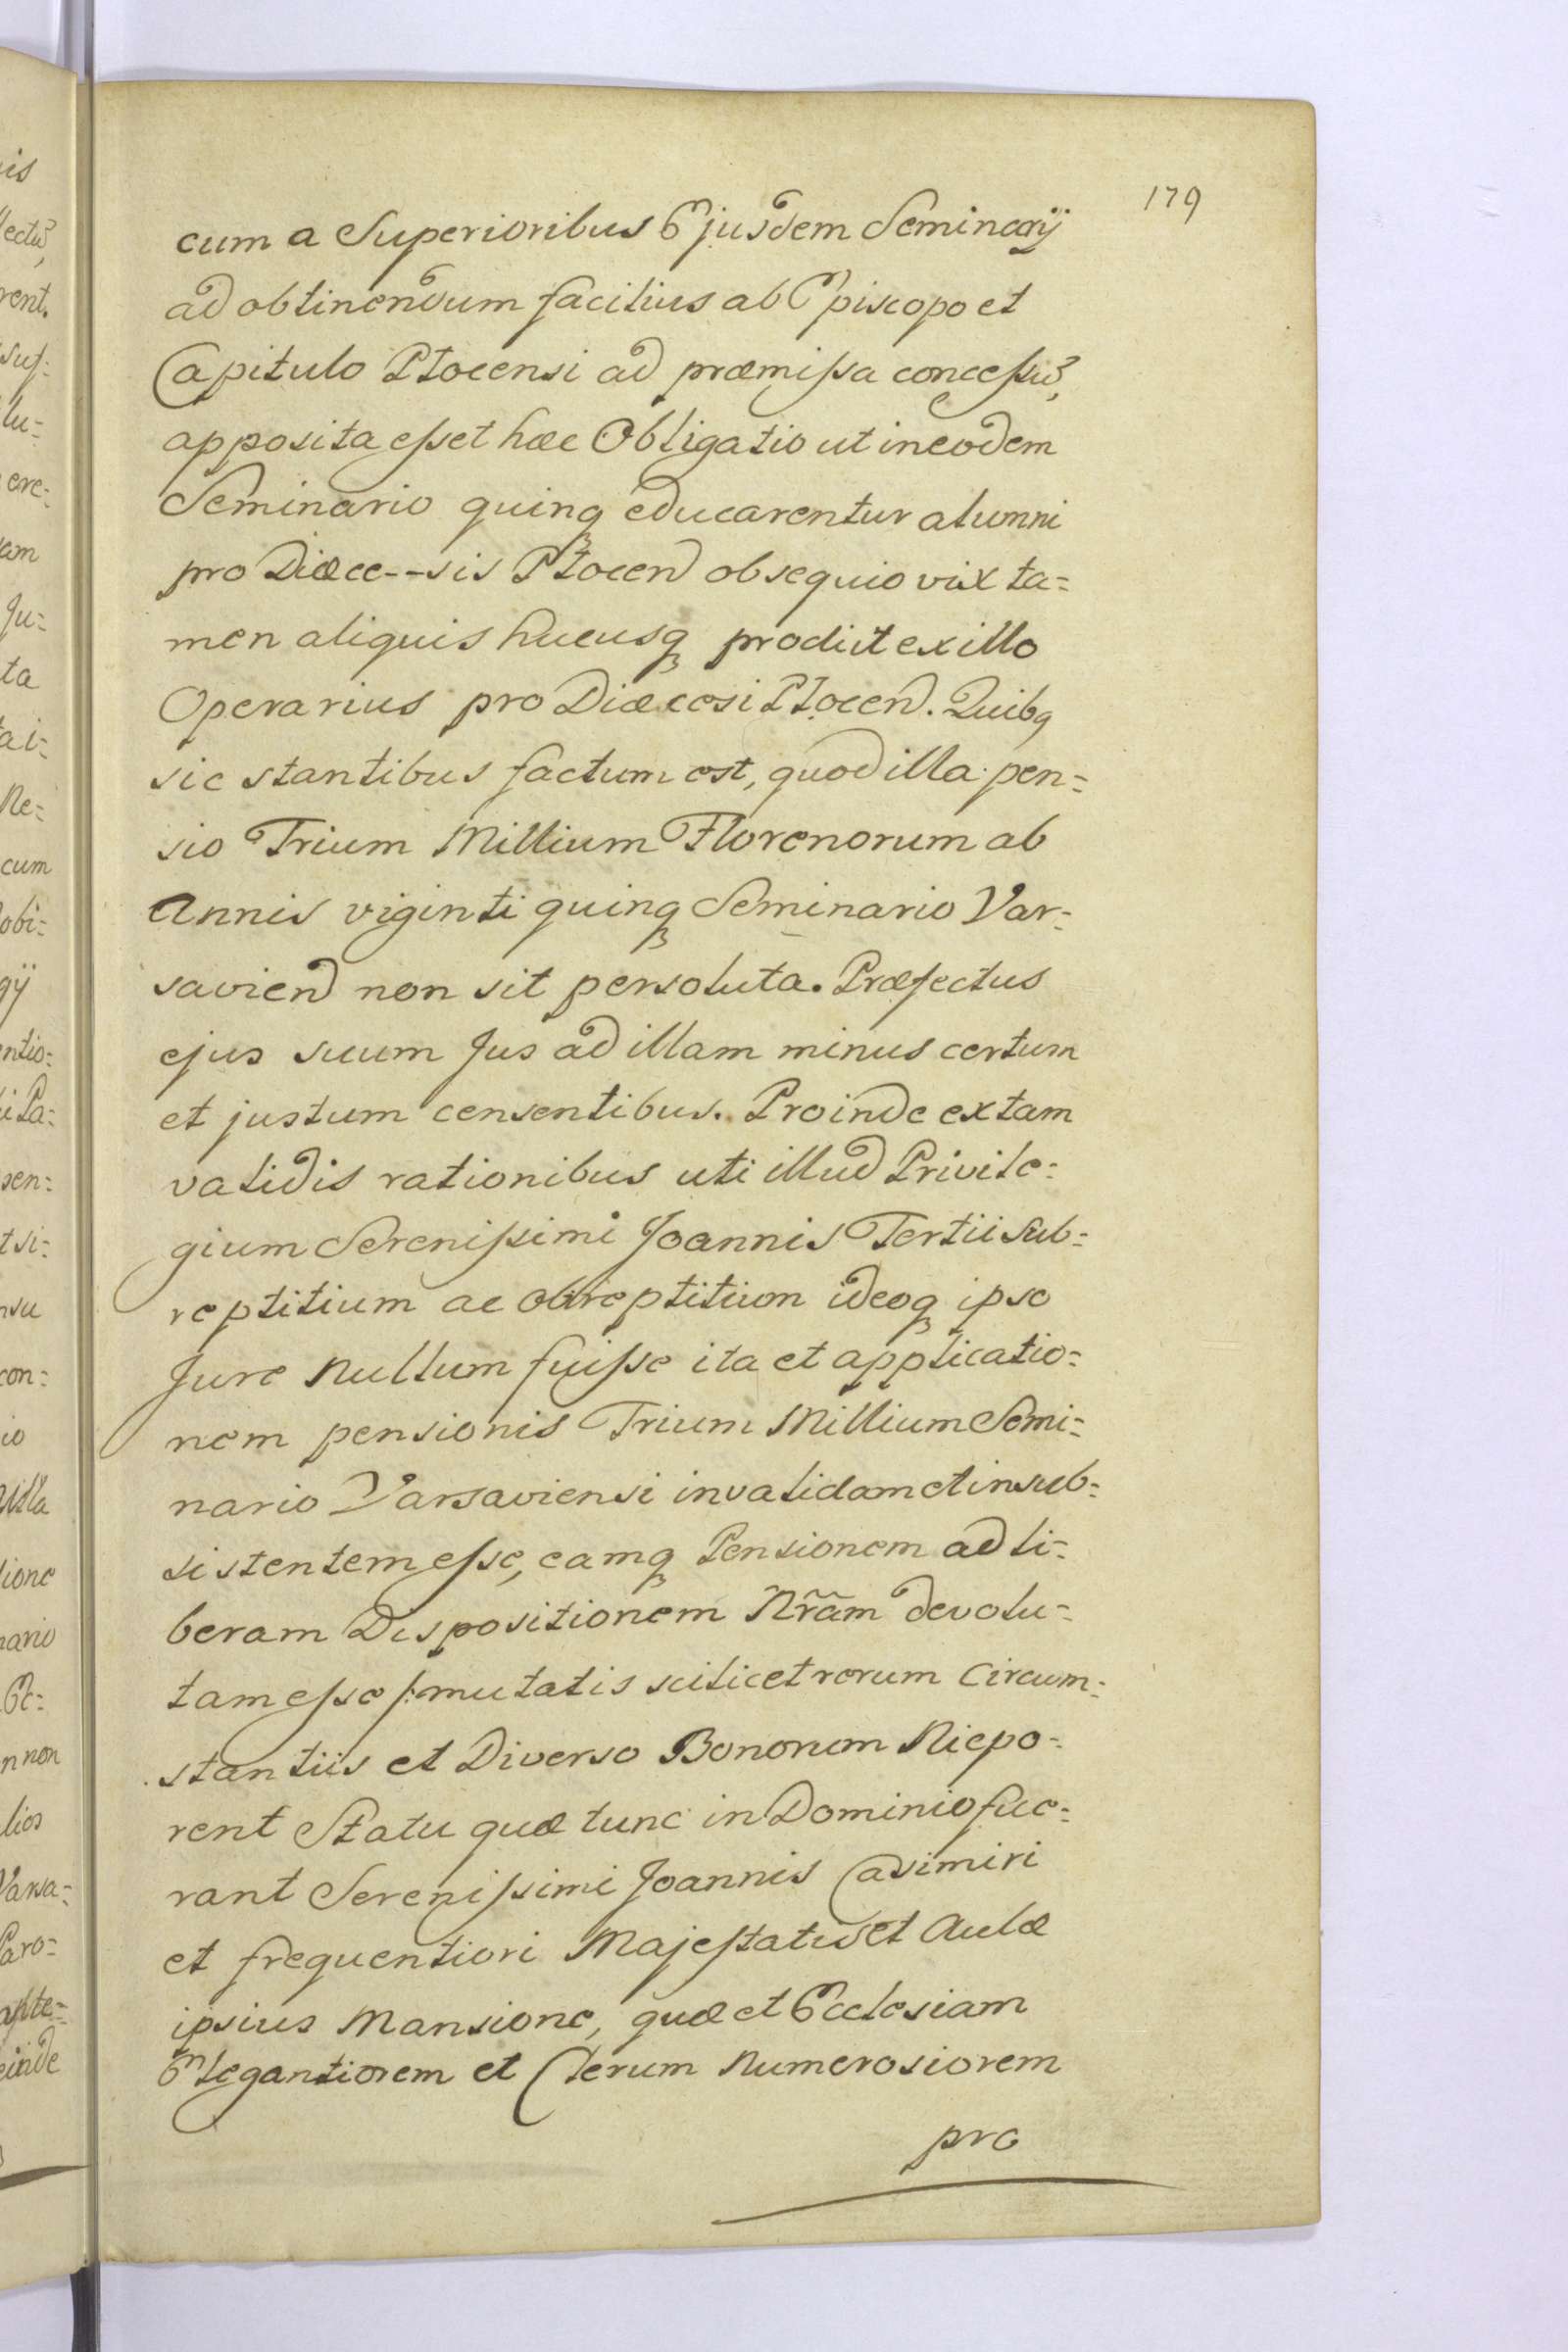 179
cum a Superioribus Ejusdem Seminarÿ
ad obtinendum facilius ab Episcopo et
Capitulo Płocensi ad præmissa concessũ,
apposita esset hæc Obligatio ut in eodem
Seminario quinq educarentur alumni
pro Diæce--sis Płocen obsequio vix ta=
men aliquis hucusq prodiit ex illo
Operarius pro Diæcesi Płocen. Quibq
sic stantibus factum est, quod illa pen=
sio Trium Millium Florenorum ab
Annis viginti quinq Seminario Var=
savien non sit persoluta. Præfectus
ejus suum Jus ad illam minus certum
et justum censentibus. Proinde ex tam
validis rationibus uti illud Privile=
gium Serenissimi Joannis Tertii sub=
reptitium ac obreptitium ideoq ipso
Jure Nullum fuisse ita et applicatio=
nem pensionis Trium Millium Semi=
nario Varsaviensi invalidam et insub=
sistentem esse, eamq Pensionem ad li=
beram Dispositionem Nr̃am devolu=
tam esse /: mutatis scilicet rerum Circum=
stantiis et Diverso Bonorum Niepo=
rent Statu quæ tunc in Dominio fue=
rant Serenissimi Joannis Casimiri
et frequentiori Majestatis et Aulæ
ipsius Mansione, quæ et Ecclesiam
Elegantiorem et Clerum Numerosiorem
pro